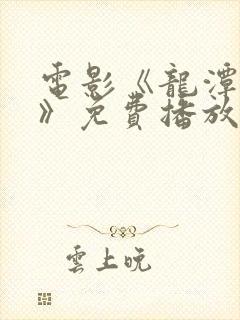 電影《龍潭
》免費播放
雲上晚